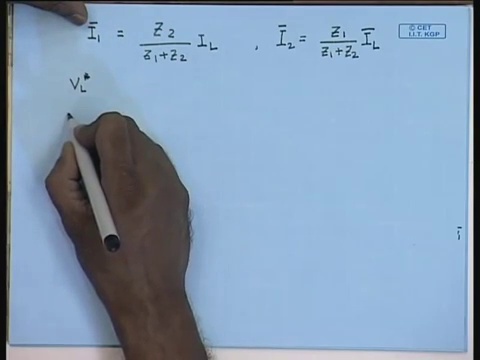 Ī₁ = Z₂ / (Z₁+Z₂) I_L , Ī₂ = Z₁ / (Z₁+Z₂) Ī_L
© CET
I.I.T. KGP
V_L*